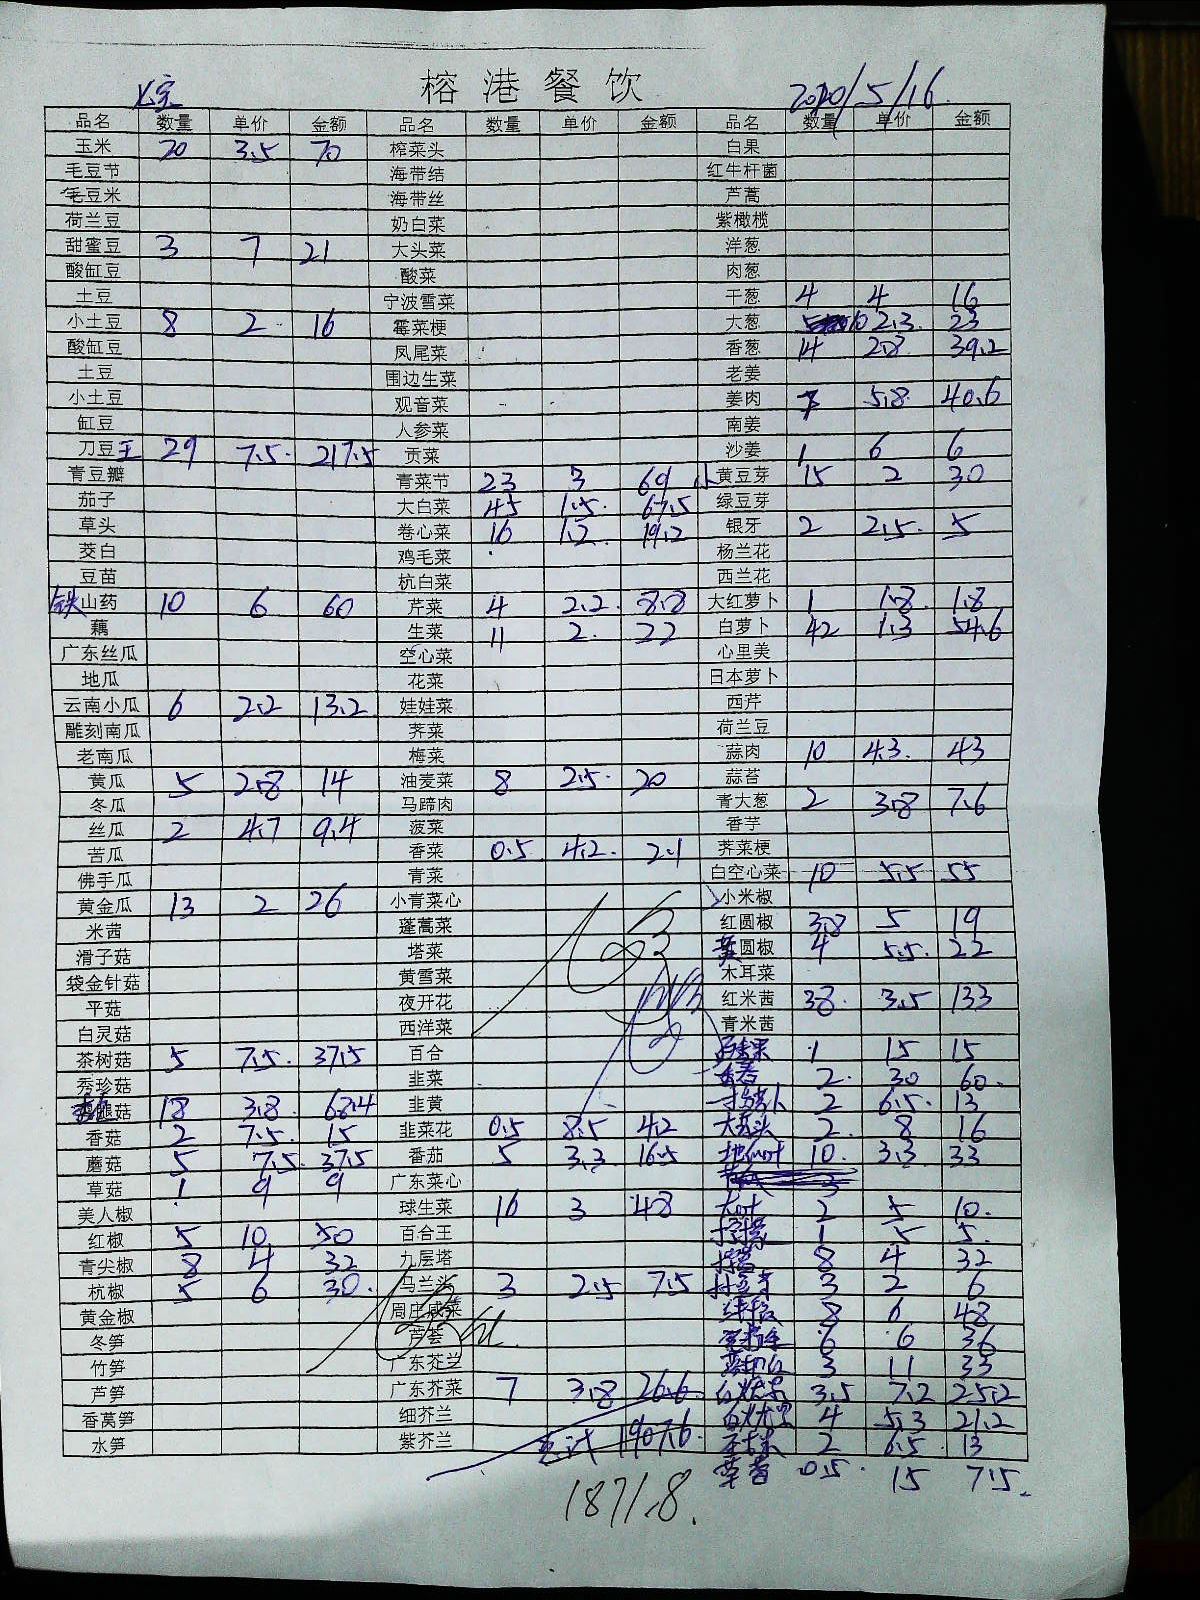 榕港餐饮
2020/5/16
品名 数量 单价 金额 品名 数量 单价 金额 品名 数量 单价 金额
玉米 20 3.5 70 榨菜头 白果
毛豆节 海带结 红牛杆菌
毛豆米 海带丝 芦蒿
荷兰豆 奶白菜 紫橄榄
甜蜜豆 3 7 21 大头菜 洋葱
酸缸豆 酸菜 肉葱
土豆 宁波雪菜 干葱 4 4 16
小土豆 8 2 16 霉菜梗 大葱 10 2.3 23
酸缸豆 凤尾菜 香葱 14 2.8 39.2
土豆 围边生菜 老姜
小土豆 观音菜 姜肉 7 5.8 40.6
缸豆 人参菜 南姜
刀豆王 29 7.5 217.5 贡菜 沙姜 1 6 6
青豆瓣 青菜节 23 3 69 小黄豆芽 15 2 30
茄子 大白菜 45 1.5 67.5 绿豆芽
草头 卷心菜 16 1.2 19.2 银牙 2 2.5 5
茭白 鸡毛菜 杨兰花
豆苗 杭白菜 西兰花
铁山药 10 6 60 芹菜 4 2.2 8.8 大红萝卜 1 1.8 1.8
藕 生菜 11 2 22 白萝卜 42 1.3 54.6
广东丝瓜 空心菜 心里美
地瓜 花菜 日本萝卜
云南小瓜 6 2.2 13.2 娃娃菜 西芹
雕刻南瓜 荠菜 荷兰豆
老南瓜 梅菜 蒜肉 10 4.3 43
黄瓜 5 2.8 14 油麦菜 8 2.5 20 蒜苔
冬瓜 马蹄肉 青大葱 2 3.8 7.6
丝瓜 2 4.7 9.4 菠菜 香芋
苦瓜 香菜 0.5 4.2 2.1 荠菜梗
佛手瓜 青菜 白空心菜 10 5.5 55
黄金瓜 13 2 26 小青菜心 小米椒
米茜 蓬蒿菜 红圆椒 3.8 5 19
滑子菇 塔菜 黄圆椒 4 5.5 22
袋金针菇 黄雪菜 木耳菜
平菇 夜开花 红米茜 38 3.5 133
白灵菇 西洋菜 青米茜
茶树菇 5 7.5 37.5 百合 1 15 15
秀珍菇 韭菜 2 30 60
菇 18 3.8 68.4 韭黄 2 6.5 13
香菇 2 7.5 15 韭菜花 0.5 8.5 4.2 2 8 16
蘑菇 5 7.5 37.5 番茄 5 3.3 16.5 10 3.3 33
草菇 1 9 9 广东菜心
美人椒 球生菜 16 3 48 2 5 10
红椒 5 10 50 百合王 1 5 5
青尖椒 8 4 32 九层塔 8 4 32
杭椒 5 6 30 马兰头 3 2.5 7.5 3 2 6
黄金椒 周庄咸菜 8 6 48
冬笋 芦荟 6 6 36
竹笋 广东芥兰 3 11 33
芦笋 广东芥菜 7 3.8 26.6 3.5 7.2 25.2
香莴笋 细芥兰 4 5.3 21.2
水笋 紫芥兰 总计 1907.6 2 6.5 13
0.5 15 7.5
1871.8